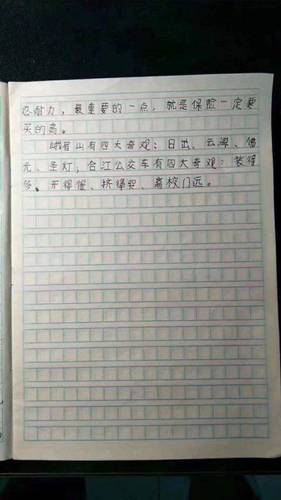 忍耐力，最重要的一点，就是保险一定要
买的高。
峨眉山有四大奇观：日出、云海、佛
光、圣灯，合江公交车有四大奇观：装得
多、开得慢、挤爆型、离校门远。